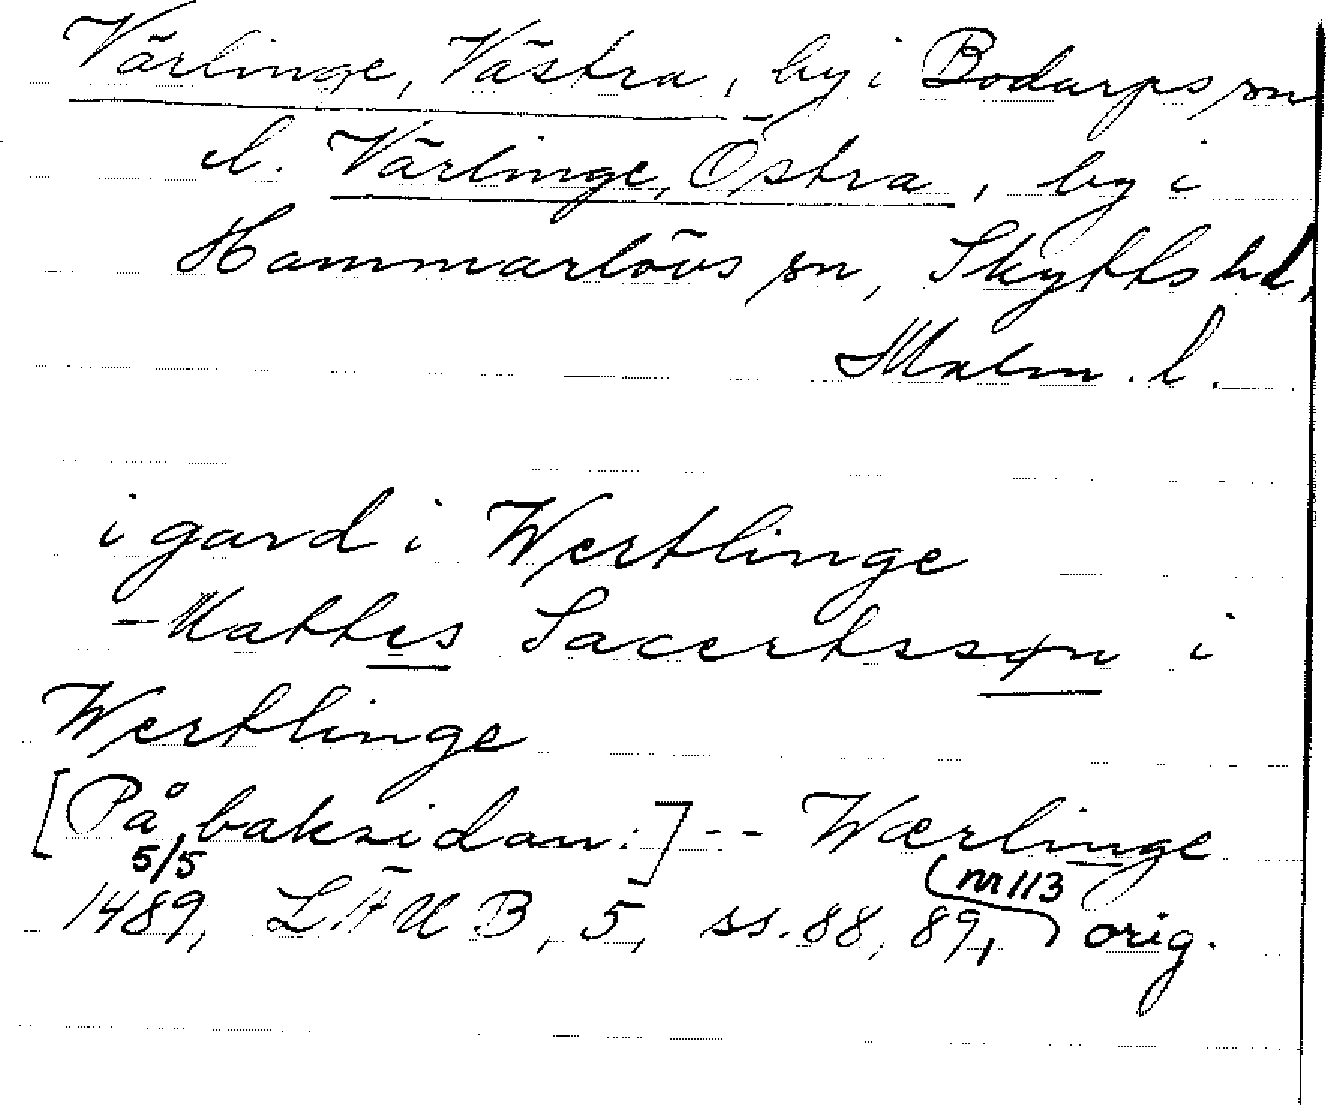 Värlinge, Västra, by i Bodarps sn
el. Värlinge, Östra, by i
Hammarlövs sn, Skytts hd,
Malm. l.
i gard i Wertlinge
- Mattes Sacertssøn i
Wertlinge
[På baksidan:] -- Wærlinge
5/5 1489, LÄUB, 5, ss. 88, 89, (nr 113) orig.